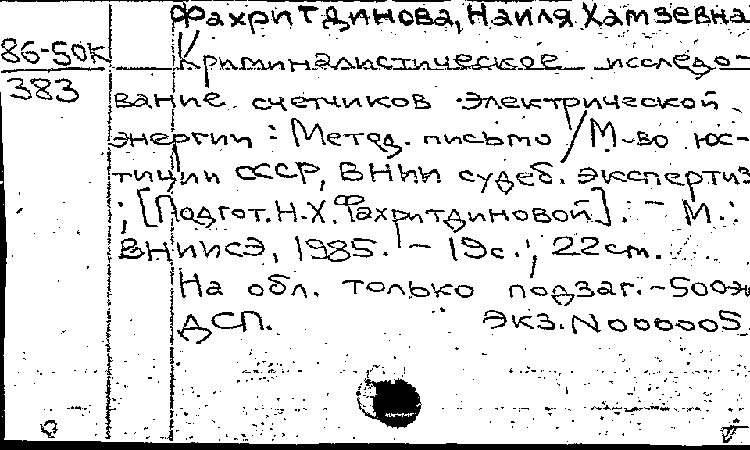 Фахритдинова, Наиля Хамзевна
86-50к
383
Криминалистическое исследо-
вание счетчиков электрической
энергии : Метод. письмо / М-во юс-
тиции СССР, ВНИИ судеб. экспертиз
; [Подгот. Н.Х. Фахритдиновой]. - М. :
ВНИИСЭ, 1985. - 19с. ; 22см.
На обл. только подзаг. - 500эк
ДСП. Экз. N000005